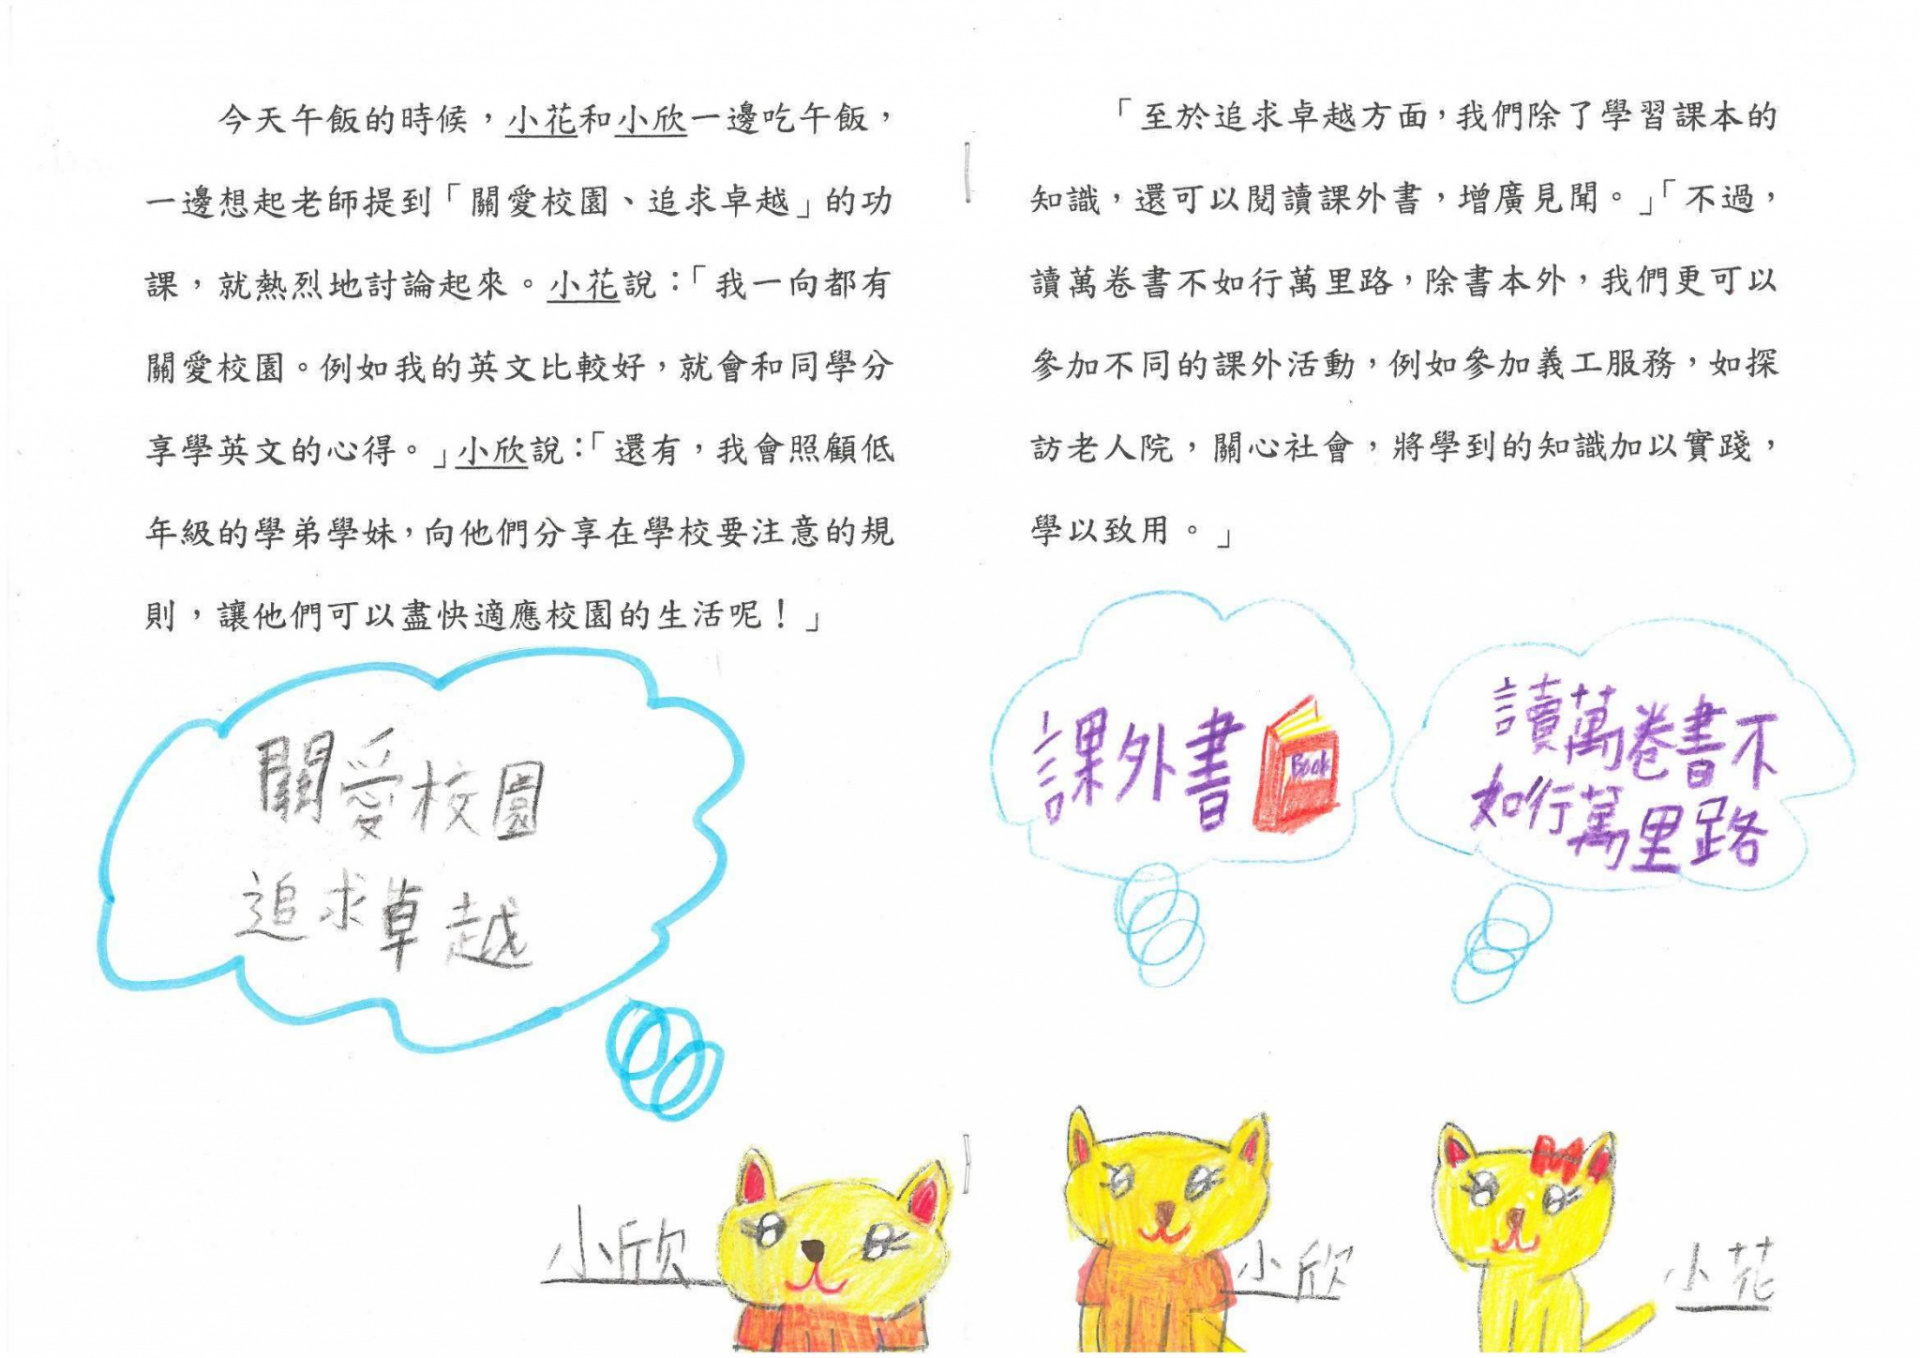 今天午飯的時候，小花和小欣一邊吃午飯，
一邊想起老師提到「關愛校園、追求卓越」的功
課，就熱烈地討論起來。小花說：「我一向都有
關愛校園。例如我的英文比較好，就會和同學分
享學英文的心得。」小欣說：「還有，我會照顧低
年級的學弟學妹，向他們分享在學校要注意的規
則，讓他們可以盡快適應校園的生活呢！」
關愛校園
追求卓越
小欣
「至於追求卓越方面，我們除了學習課本的
知識，還可以閱讀課外書，增廣見聞。」「不過，
讀萬卷書不如行萬里路，除書本外，我們更可以
參加不同的課外活動，例如參加義工服務，如探
訪老人院，關心社會，將學到的知識加以實踐，
學以致用。」
課外書
Book
讀萬卷書不
如行萬里路
小欣
小花